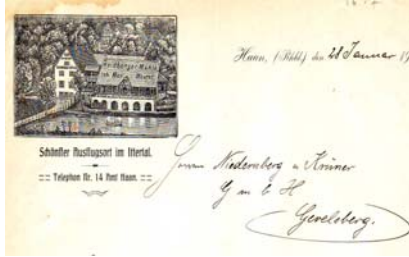 Heidberger Mühle
Haan, (Rhld.) den 28 Januar 19
Schönster Ausflugsort im Ittertal.
Telephon Nr. 14 Amt Haan.
Herren Niedernberg u Krüner
G m b H
Gevelsberg.